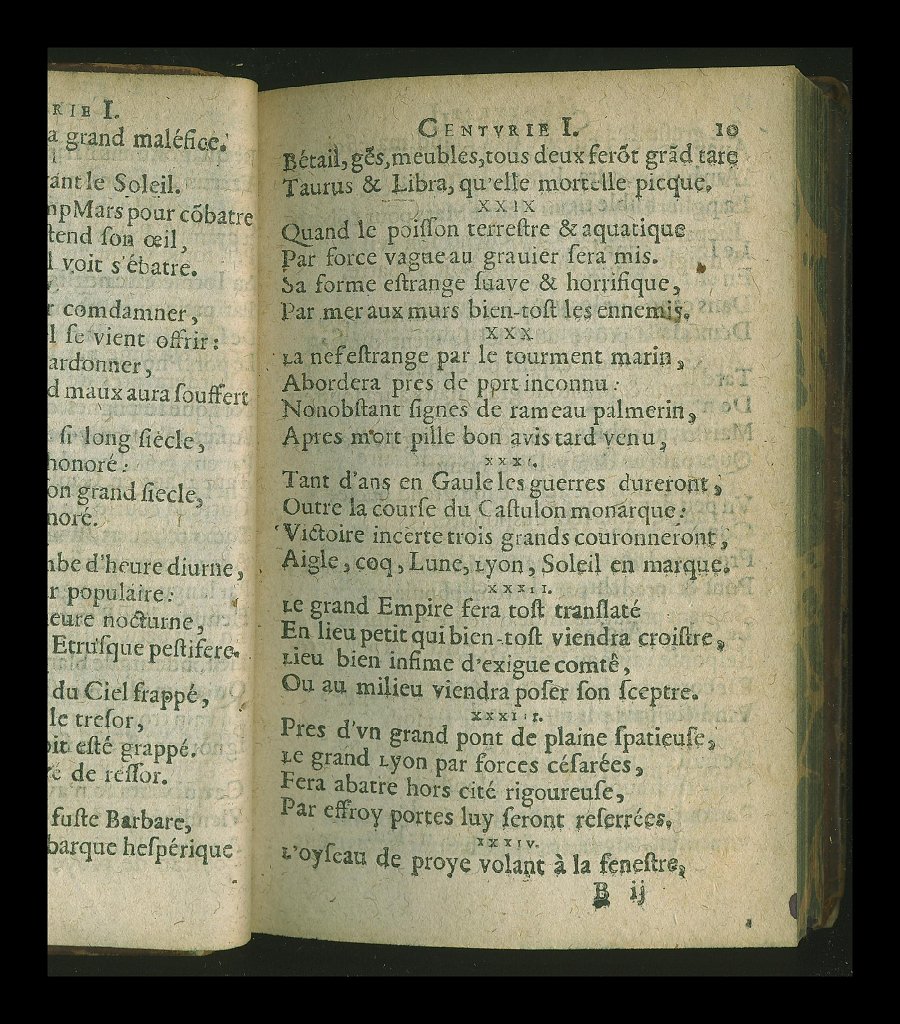 RIE I.
a grand maléfice.
ant le Soleil.
mp Mars pour cõbatre
tend ſon œil,
l voit s'ébatre.
r comdamner,
l ſe vient offrir:
ardonner,
d maux aura ſouffert
ſi long ſiècle,
honoré:
on grand ſiecle,
noré.
mbe d'heure diurne,
r populaire:
eure nocturne,
Etruſque peſtifere.
du Ciel frappé,
le treſor,
oit eſté grappé.
é de reſſor.
fuſte Barbare,
barque heſpérique
CENTVRIE I. 10
Bétail, gẽs, meubles, tous deux ferõt grãd tare
Taurus & Libra, qu'elle mortelle picque.
XXIX
Quand le poiſſon terreſtre & aquatique
Par force vague au grauier ſera mis.
Sa forme eſtrange ſuave & horrifique,
Par mer aux murs bien-toſt les ennemis.
XXX
La nef eſtrange par le tourment marin,
Abordera pres de port inconnu:
Nonobſtant ſignes de rameau palmerin,
Apres mort pille bon avis tard venu,
XXXI.
Tant d'ans en Gaule les guerres dureront,
Outre la courſe du Caſtulon monarque:
Victoire incerte trois grands couronneront,
Aigle, coq, Lune, Lyon, Soleil en marque.
XXXII.
Le grand Empire ſera toſt tranſlaté
En lieu petit qui bien-toſt viendra croiſtre,
Lieu bien infime d'exigue comtê,
Ou au milieu viendra poſer ſon ſceptre.
XXXIII.
Pres d'vn grand pont de plaine ſpatieuſe,
Le grand Lyon par forces céſarées,
Fera abatre hors cité rigoureuſe,
Par effroy portes luy ſeront reſerrées.
XXXIV.
L'oyſeau de proye volant à la feneſtre,
B ij